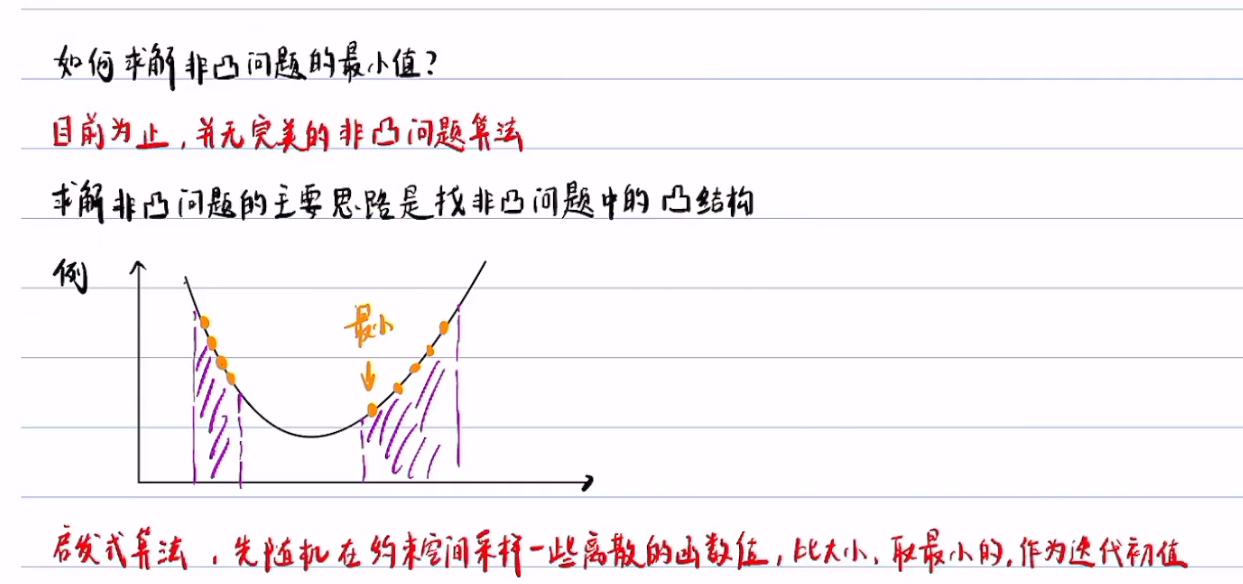 如何求解非凸问题的最小值?
目前为止,并无完美的非凸问题算法
求解非凸问题的主要思路是找非凸问题中的凸结构
例
最小
启发式算法,先随机在约束空间采样一些离散的函数值,比大小,取最小的,作为迭代初值